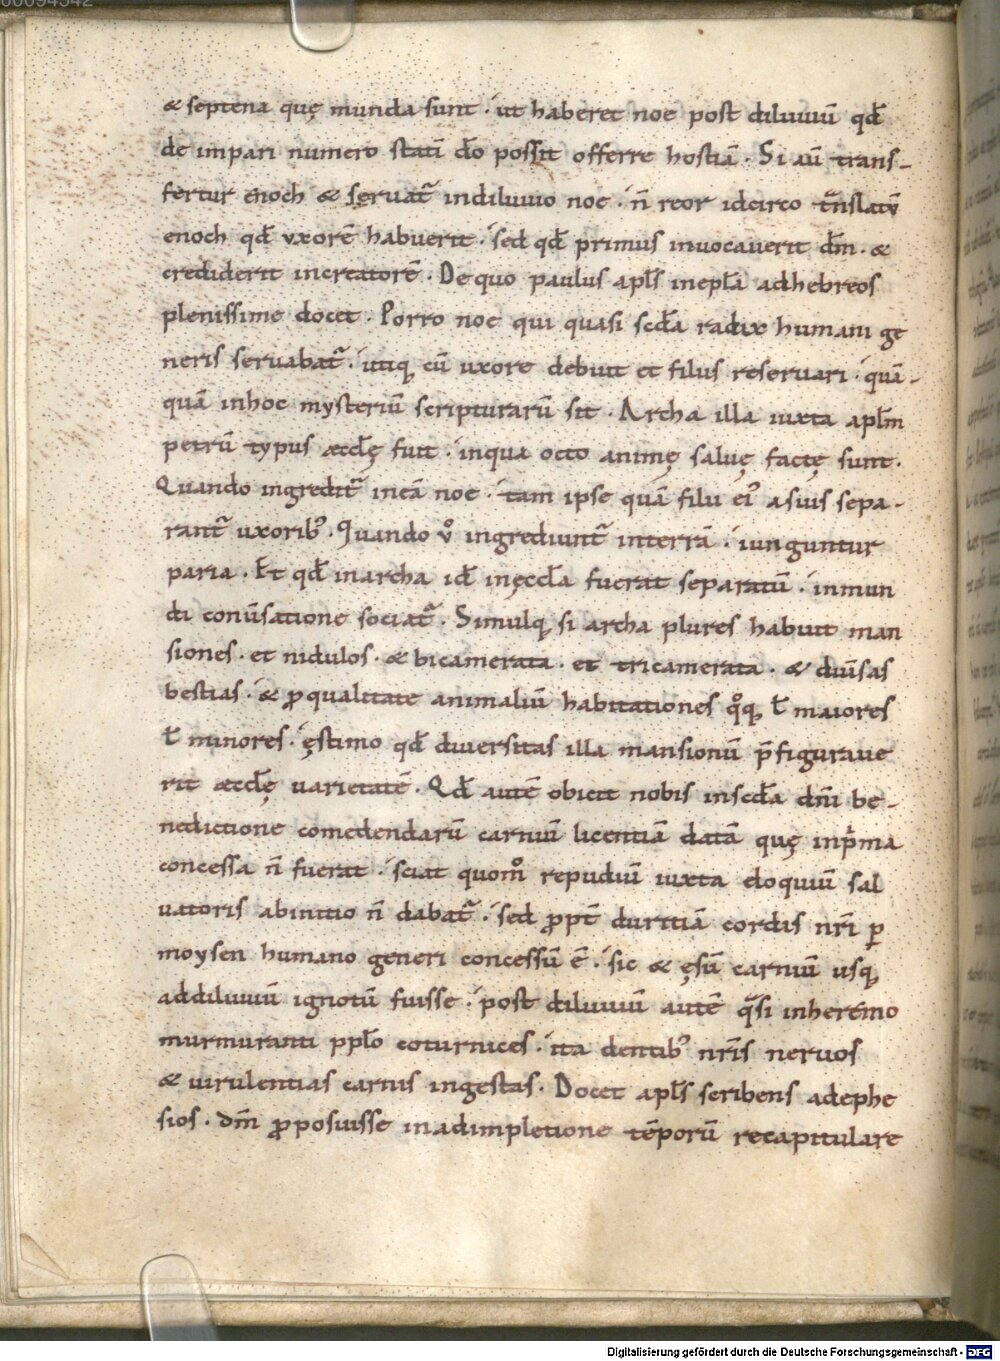 & septena quę munda sunt · ut haberet noe post diluuiū qđ
de impari numero statī do possit offerre hostiā · Si aū trans-
fertur enoch & seruat̃ indiluuio noe · n̄ reor idcirco t̃nslatū
enoch qđ vxorē habuerit · sed qđ primus inuocauerit dm̄ · &
crediderit increatorē · De quo paulus apl̄s inepl̄a adhebreos
plenissime docet · Porro noe qui quasi scđa radix humani ge
neris seruabat̃ · utiq; cū uxore debuit et filus reseruari · quā-
quā inhoc mysteriū scripturarū sit · Archa illa iuxta apl̄m
petrū typus æccl̄ę fuit · inqua octo animę saluę factę sunt ·
Quando ingredit̃ ineā noe · tam ipse quā filu ei᾽ asuis sepa-
rant̃ uxorib᾽ · Quando v̊ ingrediunt̃ interrā · iunguntur
paria · Et qđ inarcha iđ inęccl̄a fuerat separatū · inmun
di conūsatione sociat̃ · Simulq; si archa plures habuit man
siones · et nidulos · & bicamerata · et tricamerata · & diūsas
bestias · & ꝓqualitate animaliū habitationes qͦq; ł maiores
ł minores · ęstimo qđ diuersitas illa mansionū p̄figuraue
rit æccl̄ę uarietatē · Qđ autē obicit nobis inscđa dnī be-
nedictione comedendarū carniū licentiā datā quę inpͥma
concessa n̄ fuerat · sciat quomͦ repudiū iuxta eloquiū sal
uatoris abinitio n̄ dabat̃ · sed ꝓpt̄ duritiā cordis nr̄i ꝑ
moysen humano generi concessū ē · sic & ęsū carniū usq;
addiluuiū ignotū fuisse · post diluuiū autē qͣsi inheremo
murmuranti ppl̄o coturnices · ita dentib᾽ nr̄is neruos
& uirulentias carnis ingestas · Docet apl̄s scribens adephe
sios · dm̄ ꝓposuisse inadimpletione tēporū recapitulare
Digitalisierung gefördert durch die Deutsche Forschungsgemeinschaft - DFG